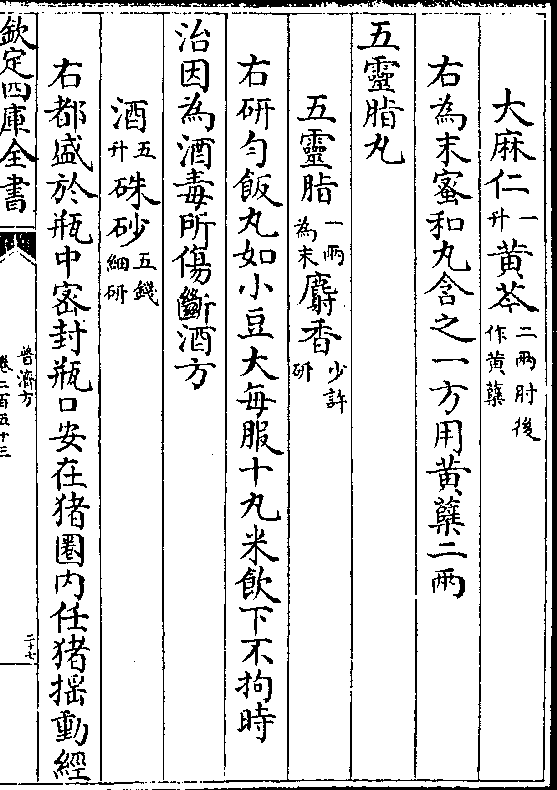 大麻仁一升 黄芩二兩肘後作黄蘗
右為末蜜和丸含之一方用黄蘗二兩
五靈脂丸
五靈脂一兩為末 麝香少許研
右研勻飯丸如小豆大每服十丸米飲下不拘時
治因為酒毒所傷斷酒方
酒五升 硃砂五錢細研
右都盛於瓶中密封瓶口安在猪圈内任猪揺動經
欽定四庫全書
普濟方
卷二百五十三
二十七